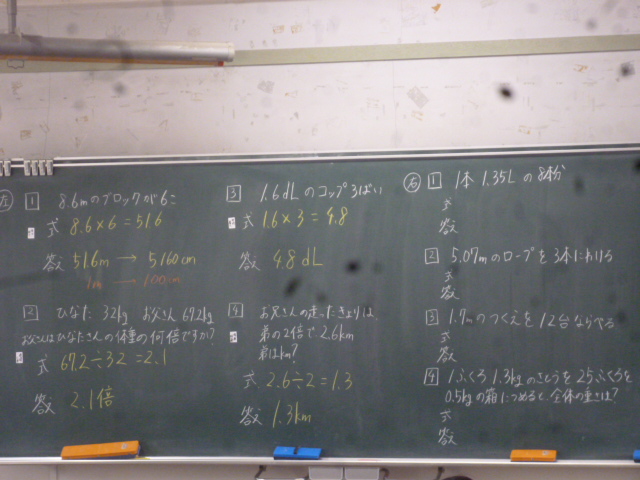 左
1 8.6mのブロックが6こ
式 8.6×6=51.6
答え 51.6m → 5160cm
1m → 100cm
2 ひなた 32kg お父さん 67.2kg
お父さんはひなたさんの体重の何倍ですか?
式 67.2÷32=2.1
答え 2.1倍
3 1.6dLのコップ3ばい
式 1.6×3=4.8
答え 4.8dL
4 お兄さんの走ったきょりは、
弟の2倍で2.6km
弟は km?
式 2.6÷2=1.3
答え 1.3km
右
1 1本 1.35Lの8本分
式
答え
2 5.07mのロープを3本にわける
式
答え
3 1.7mのつくえを12台ならべる
式
答え
4 1ふくろ1.3kgのさとうを25ふくろを
0.5kgの箱につめると、全体の重さは?
式
答え